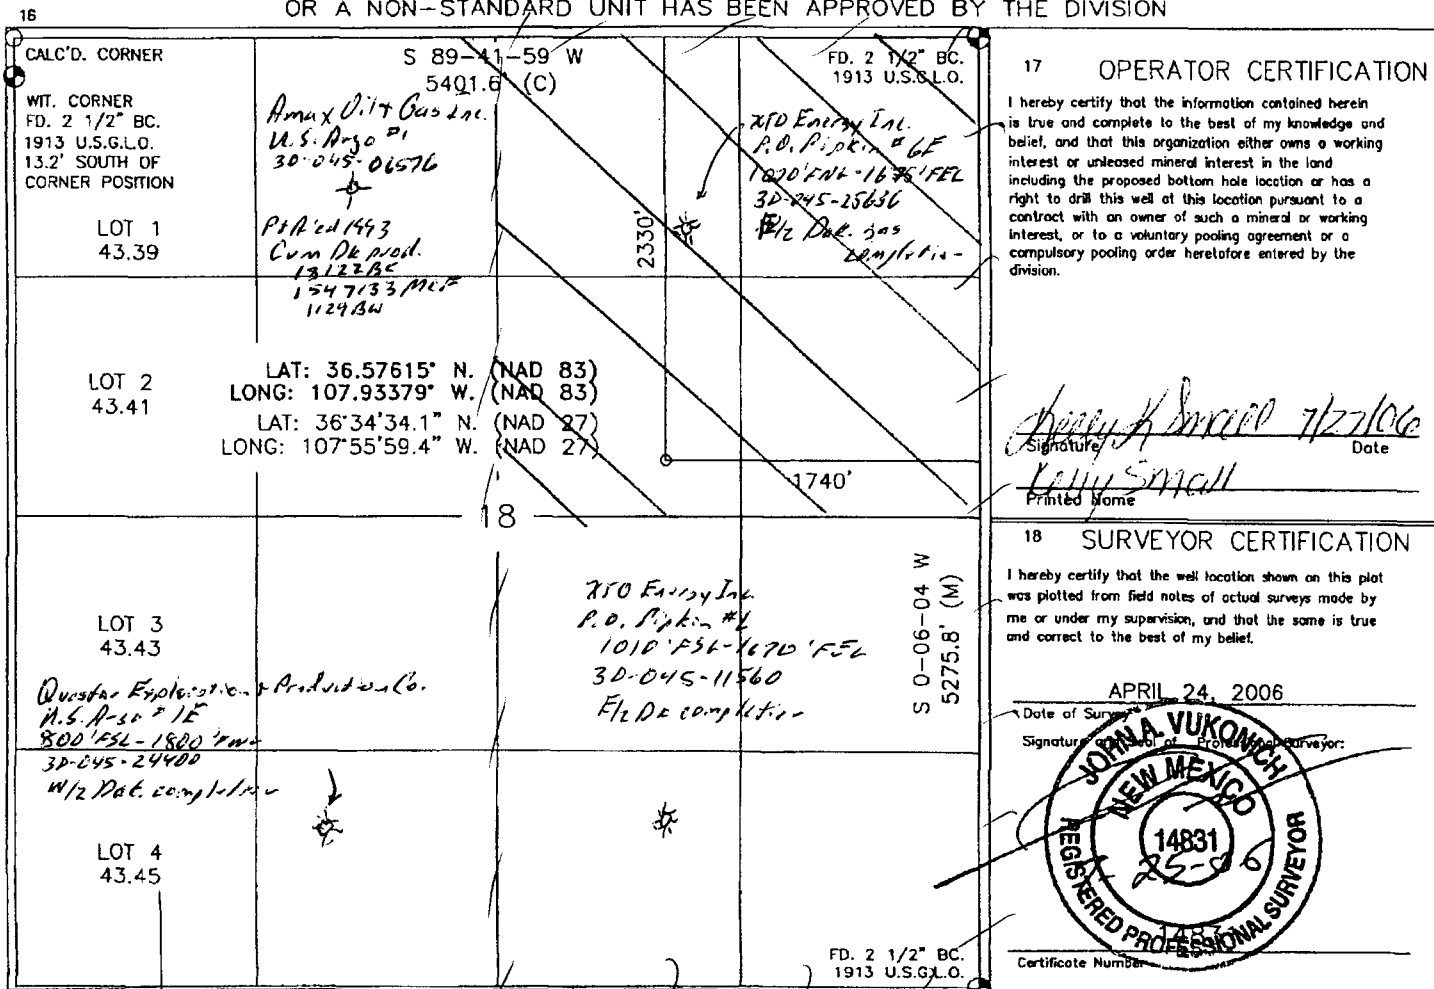 OR A NON-STANDARD UNIT HAS BEEN APPROVED BY THE DIVISION
16
CALC'D. CORNER
WIT. CORNER
FD. 2 1/2" BC.
1913 U.S.G.L.O.
13.2' SOUTH OF
CORNER POSITION
S 89-41-59 W
5401.6' (C)
FD. 2 1/2" BC.
1913 U.S.G.L.O.
Amax Oil & Gas Inc.
U.S. Argo #1
30-045-06576
P&A'ed 1993
Cum Dk prod.
13122 BC
1547133 MCF
1129 BW
XTO Energy Inc.
P.O. Pipkin # 6E
1020' FNL-1675' FEL
30-045-25636
E/2 Dak. gas
completion
2330'
LOT 1
43.39
LOT 2
43.41
LAT: 36.57615° N. (NAD 83)
LONG: 107.93379° W. (NAD 83)
LAT: 36°34'34.1" N. (NAD 27)
LONG: 107°55'59.4" W. (NAD 27)
1740'
18
LOT 3
43.43
XTO Energy Inc.
P.O. Pipkin #6
1010' FSL-1670' FEL
30-045-11560
E/2 Dk completion
S 0-06-04 W
5275.8' (M)
Questar Exploration & Production Co.
U.S. Argo # 1E
800' FSL-1800' FWL
30-045-24400
W/2 Dak. completion
LOT 4
43.45
FD. 2 1/2" BC.
1913 U.S.G.L.O.
17 OPERATOR CERTIFICATION
I hereby certify that the information contained herein
is true and complete to the best of my knowledge and
belief, and that this organization either owns a working
interest or unleased mineral interest in the land
including the proposed bottom hole location or has a
right to drill this well at this location pursuant to a
contract with an owner of such a mineral or working
interest, or to a voluntary pooling agreement or a
compulsory pooling order heretofore entered by the
division.
Kelly K Small 7/27/06
Signature Date
Kelly Small
Printed Name
18 SURVEYOR CERTIFICATION
I hereby certify that the well location shown on this plat
was plotted from field notes of actual surveys made by
me or under my supervision, and that the same is true
and correct to the best of my belief.
APRIL 24, 2006
Date of Survey
Signature and Seal of Professional Surveyor:
JOHN A. VUKONICH
NEW MEXICO
14831
REGISTERED PROFESSIONAL SURVEYOR
14831
Certificate Number